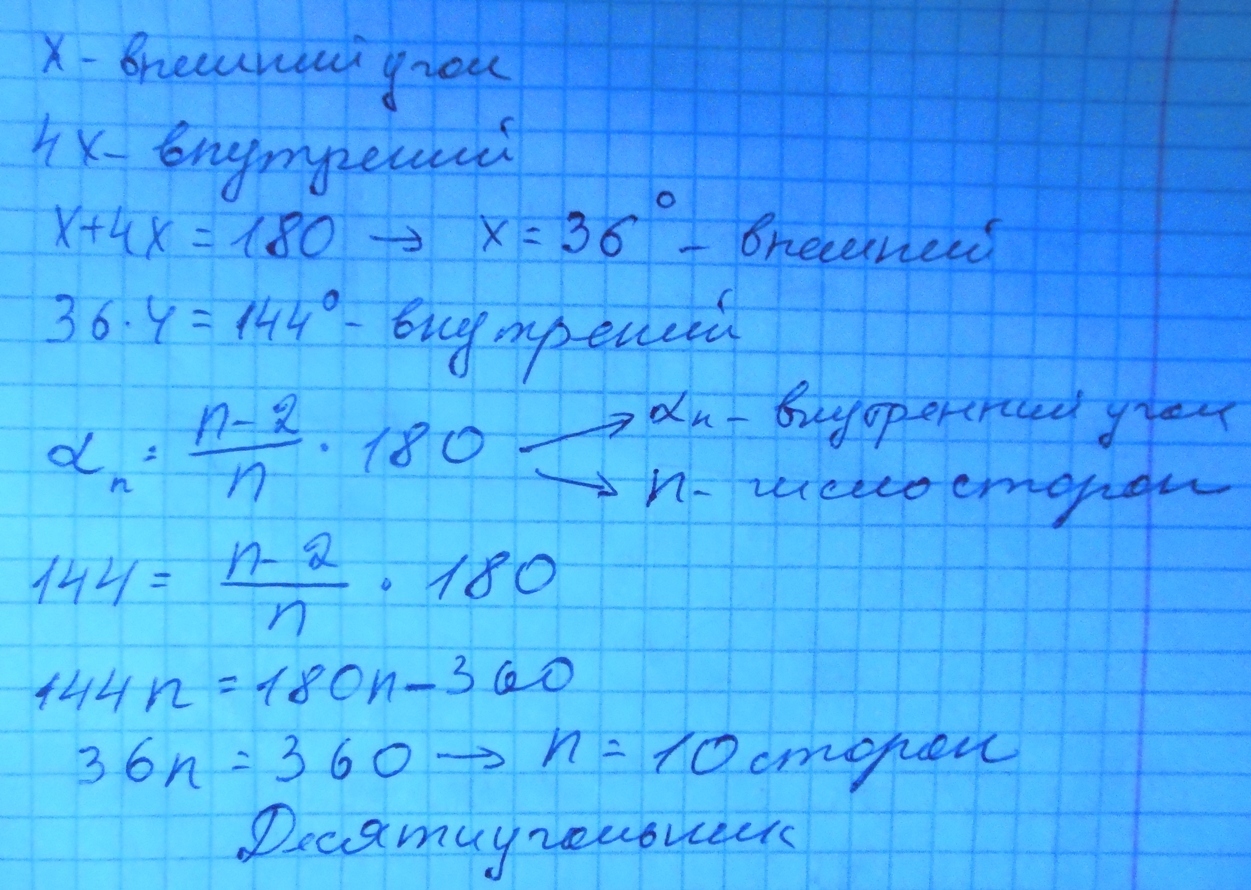 x - внешний угол
4x - внутрений
x+4x=180 → x=36° - внешний
36·4=144° - внутрений
αₙ = (n-2)/n · 180 → αₙ - внутренний угол
→ n - число сторон
144 = (n-2)/n · 180
144n = 180n - 360
36n = 360 → n = 10 сторон
Десятиугольник